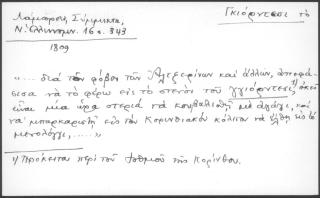 Γκιόρντεσι το
Λάμπρος, Σύμμικτα,
Ν. Ελληνομν. 16 σ. 343
1809
"... διά τον φόβον των Αλεξερίνων και άλλων, αποφά-
σισα να το φέρω εις το στενόν του γγιόρντεσι,¹⁾ εκεί
είναι μία ώρα στεριά να κουβαληθή με αμάξι, και
να μπαρκαρισθή εις τον Κορινθιακόν κόλπον να έλθη εις το
....."
1) Πρόκειται περί του Ισθμού της Κορίνθου.